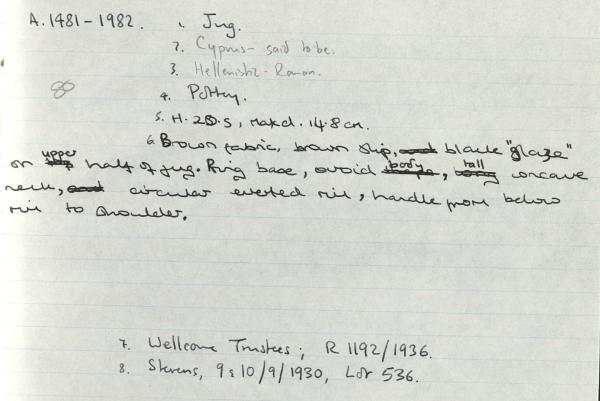 A.1481-1982. 1. Jug.
2. Cyprus - said to be.
3. Hellenistic - Roman.
88
4. Pottery.
5. H. 25.5, max d. 14.8 cm.
6. Brown fabric, brown slip, and black "glaze"
on upper half of jug. Ring base, ovoid body, tall concave
neck, and circular everted rim, handle from below
rim to shoulder.
7. Wellcome Trustees; R 1192/1936.
8. Stevens, 9 & 10/9/1930, Lot 536.